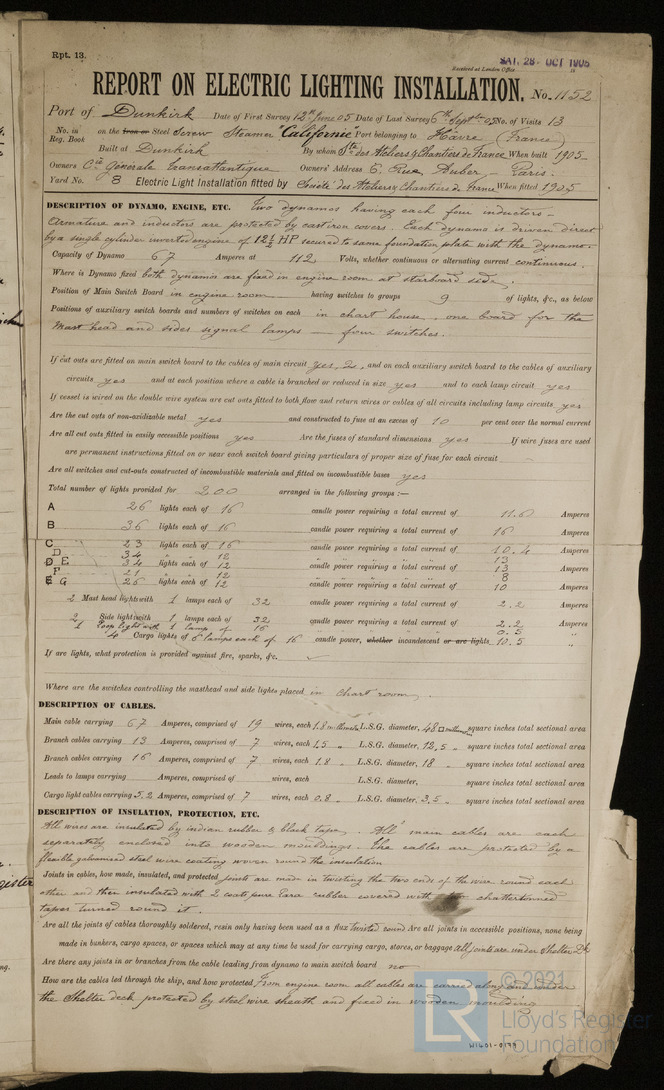 Rpt. 13.
SAT. 28 OCT 1905
Received at London Office
REPORT ON ELECTRIC LIGHTING INSTALLATION. No. 1152
Port of Dunkirk Date of First Survey 12th June 05 Date of Last Survey 6th Sept 05 No. of Visits 13
No. in Reg. Book on the Iron or Steel Screw Steamer "Californie" Port belonging to Havre (France)
Built at Dunkirk By whom Sté des Ateliers & Chantiers de France When built 1905
Owners Cie Générale Transatlantique Owners' Address 6, Rue Auber, Paris.
Yard No. 3 Electric Light Installation fitted by Société des Ateliers & Chantiers de France When fitted 1905
DESCRIPTION OF DYNAMO, ENGINE, ETC. Two dynamos having each four inductors -
Armature and inductors are protected by cast iron covers. Each dynamo is driven direct
by a single cylinder inverted engine of 12½ HP secured to same foundation plate with the dynamo.
Capacity of Dynamo 67 Amperes at 112 Volts, whether continuous or alternating current continuous.
Where is Dynamo fixed both dynamos are fixed in engine room at starboard side.
Position of Main Switch Board in engine room having switches to groups 9 of lights, &c., as below
Positions of auxiliary switch boards and numbers of switches on each in chart house, one board for the
mast head and sides signal lamps — four switches.
If cut outs are fitted on main switch board to the cables of main circuit yes, 2, and on each auxiliary switch board to the cables of auxiliary
circuits yes and at each position where a cable is branched or reduced in size yes and to each lamp circuit yes
If vessel is wired on the double wire system are cut outs fitted to both flow and return wires or cables of all circuits including lamp circuits yes
Are the cut outs of non-oxidizable metal yes and constructed to fuse at an excess of 10 per cent over the normal current
Are all cut outs fitted in easily accessible positions yes Are the fuses of standard dimensions yes If wire fuses are used
are permanent instructions fitted on or near each switch board giving particulars of proper size of fuse for each circuit
Are all switches and cut-outs constructed of incombustible materials and fitted on incombustible bases yes
Total number of lights provided for 200 arranged in the following groups :—
A 26 lights each of 16 candle power requiring a total current of Amperes
B 36 lights each of 16 candle power requiring a total current of 16 Amperes
C 23 lights each of 16 candle power requiring a total current of 10.4 Amperes
D 34 " " 12 13
D E 34 lights each of 12 candle power requiring a total current of 13 Amperes
F 21 " " 12 " " " 8
E G 26 lights each of 12 candle power requiring a total current of 10 Amperes
2 Mast head light with 1 lamps each of 32 candle power requiring a total current of 2.2 Amperes
2 Side light with 1 lamps each of 32 candle power requiring a total current of 2.2 Amperes
1 light with 1 lamp of 16 0.5 "
4 Cargo lights of 5 lamps each of 16 candle power, whether incandescent or arc lights 10.5 "
If arc lights, what protection is provided against fire, sparks, &c.
Where are the switches controlling the masthead and side lights placed in chart room.
DESCRIPTION OF CABLES.
Main cable carrying 67 Amperes, comprised of 19 wires, each 1.8 millimètres L.S.G. diameter, 48 □ millim square inches total sectional area
Branch cables carrying 13 Amperes, comprised of 7 wires, each 1.5 " L.S.G. diameter, 12.5 " square inches total sectional area
Branch cables carrying 16 Amperes, comprised of 7 wires, each 1.8 " L.S.G. diameter, 18 " square inches total sectional area
Leads to lamps carrying Amperes, comprised of wires, each L.S.G. diameter, square inches total sectional area
Cargo light cables carrying 5.2 Amperes, comprised of 7 wires, each 0.8 " L.S.G. diameter, 3.5 " square inches total sectional area
DESCRIPTION OF INSULATION, PROTECTION, ETC.
All wires are insulated by indian rubber & black tape. All main cables are each
separately enclosed into wooden mouldings. The cables are protected by a
flexible galvanised steel wire coating woven round the insulation
Joints in cables, how made, insulated, and protected joints are made in twisting the two ends of the wire round each
other and then insulated with 2 coats pure Para rubber covered with chattertonned
tapes turned round it.
Are all the joints of cables thoroughly soldered, resin only having been used as a flux twisted round Are all joints in accessible positions, none being
made in bunkers, cargo spaces, or spaces which may at any time be used for carrying cargo, stores, or baggage all joints are under Shelter Dk
Are there any joints in or branches from the cable leading from dynamo to main switch board no
How are the cables led through the ship, and how protected From engine room all cables are carried along and under
the Shelter deck protected by steel wire sheath and fixed in wooden moulding
© 2021
LR
Lloyd's Register
Foundation
W1401-0179